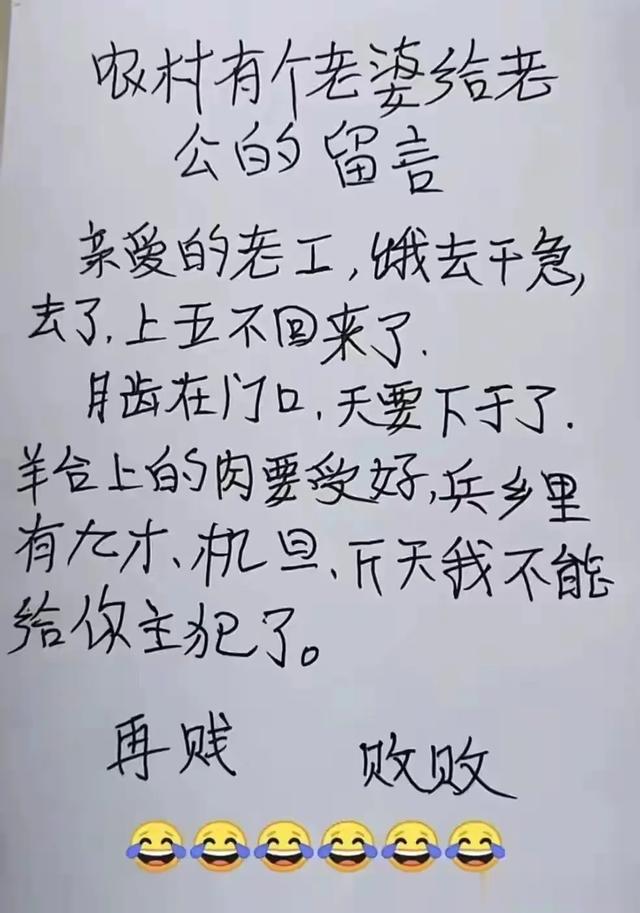 农村有个老婆给老
公的留言
亲爱的老工，饿去干急，
去了.上五不回来了.
月齿在门口，天要下于了.
羊台上的肉要受好，兵乡里
有九才、机旦、斤天我不能
给你主犯了。
再贱 败败
😂😂😂😂😂😂